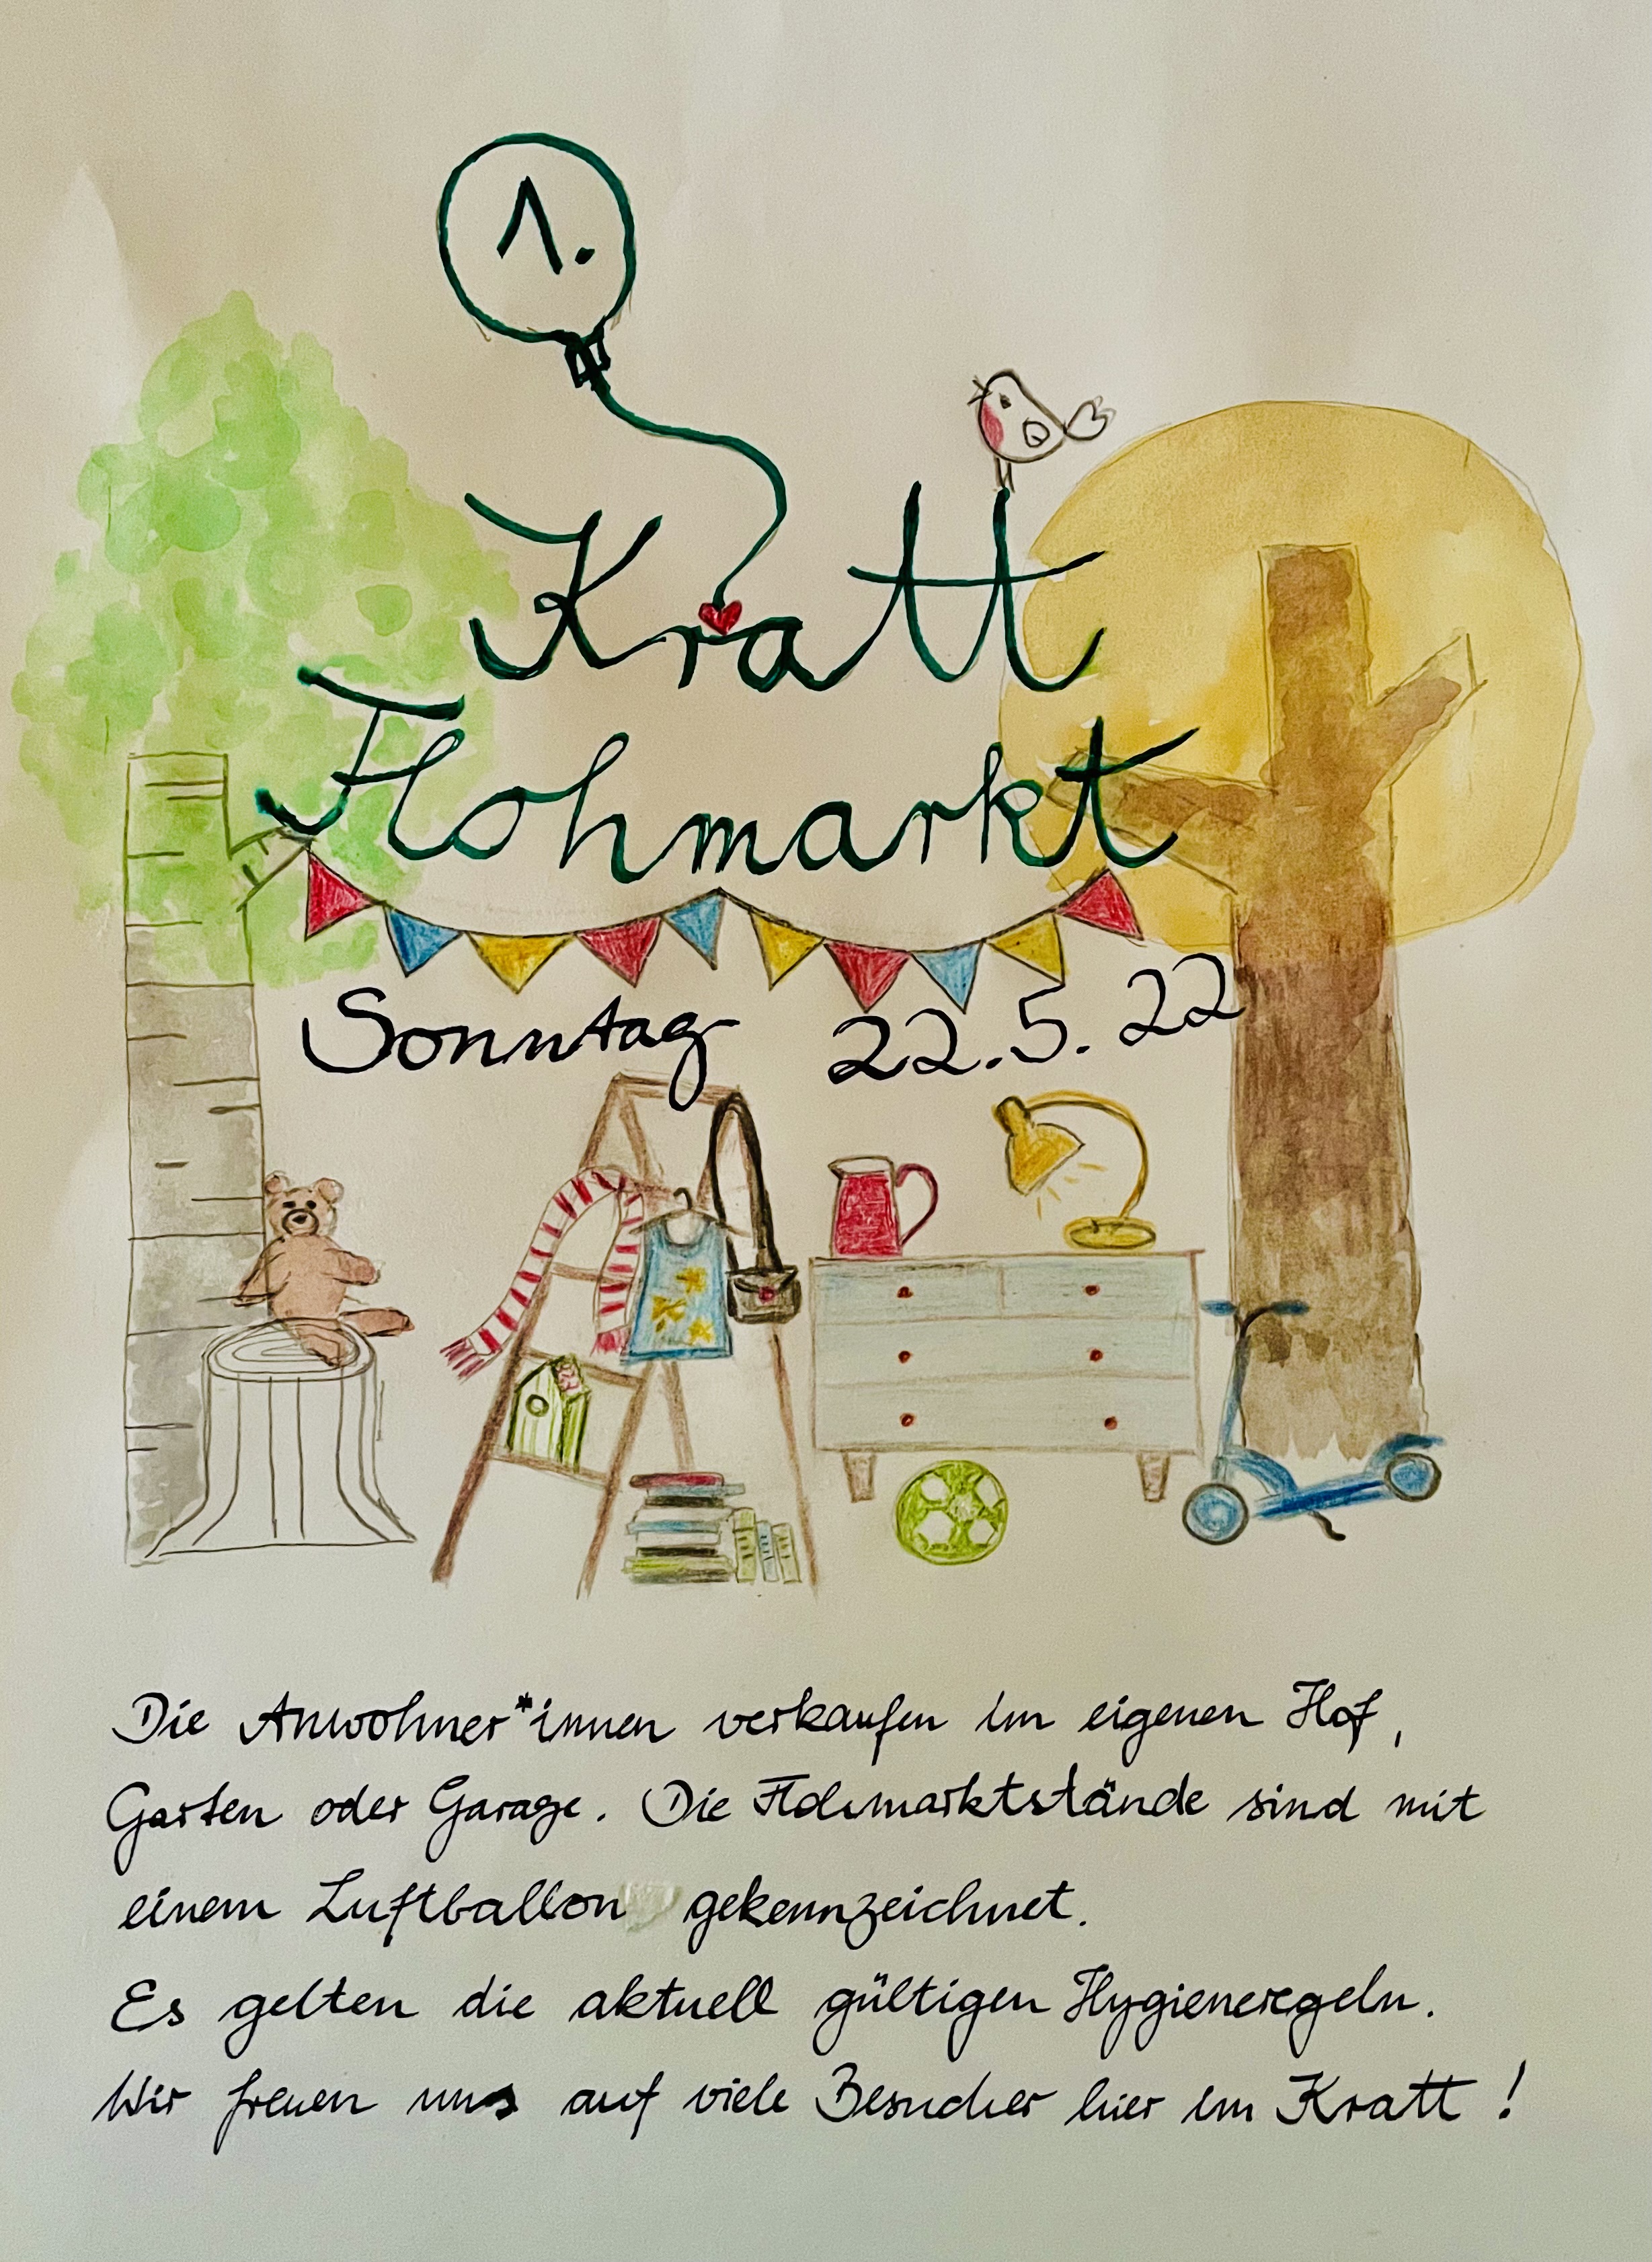 1.
Kratt
Flohmarkt
Sonntag 22.5.22
Die Anwohner*innen verkaufen im eigenen Hof,
Garten oder Garage. Die Flohmarktstände sind mit
einem Luftballon gekennzeichnet.
Es gelten die aktuell gültigen Hygieneregeln.
Wir freuen uns auf viele Besucher hier im Kratt!